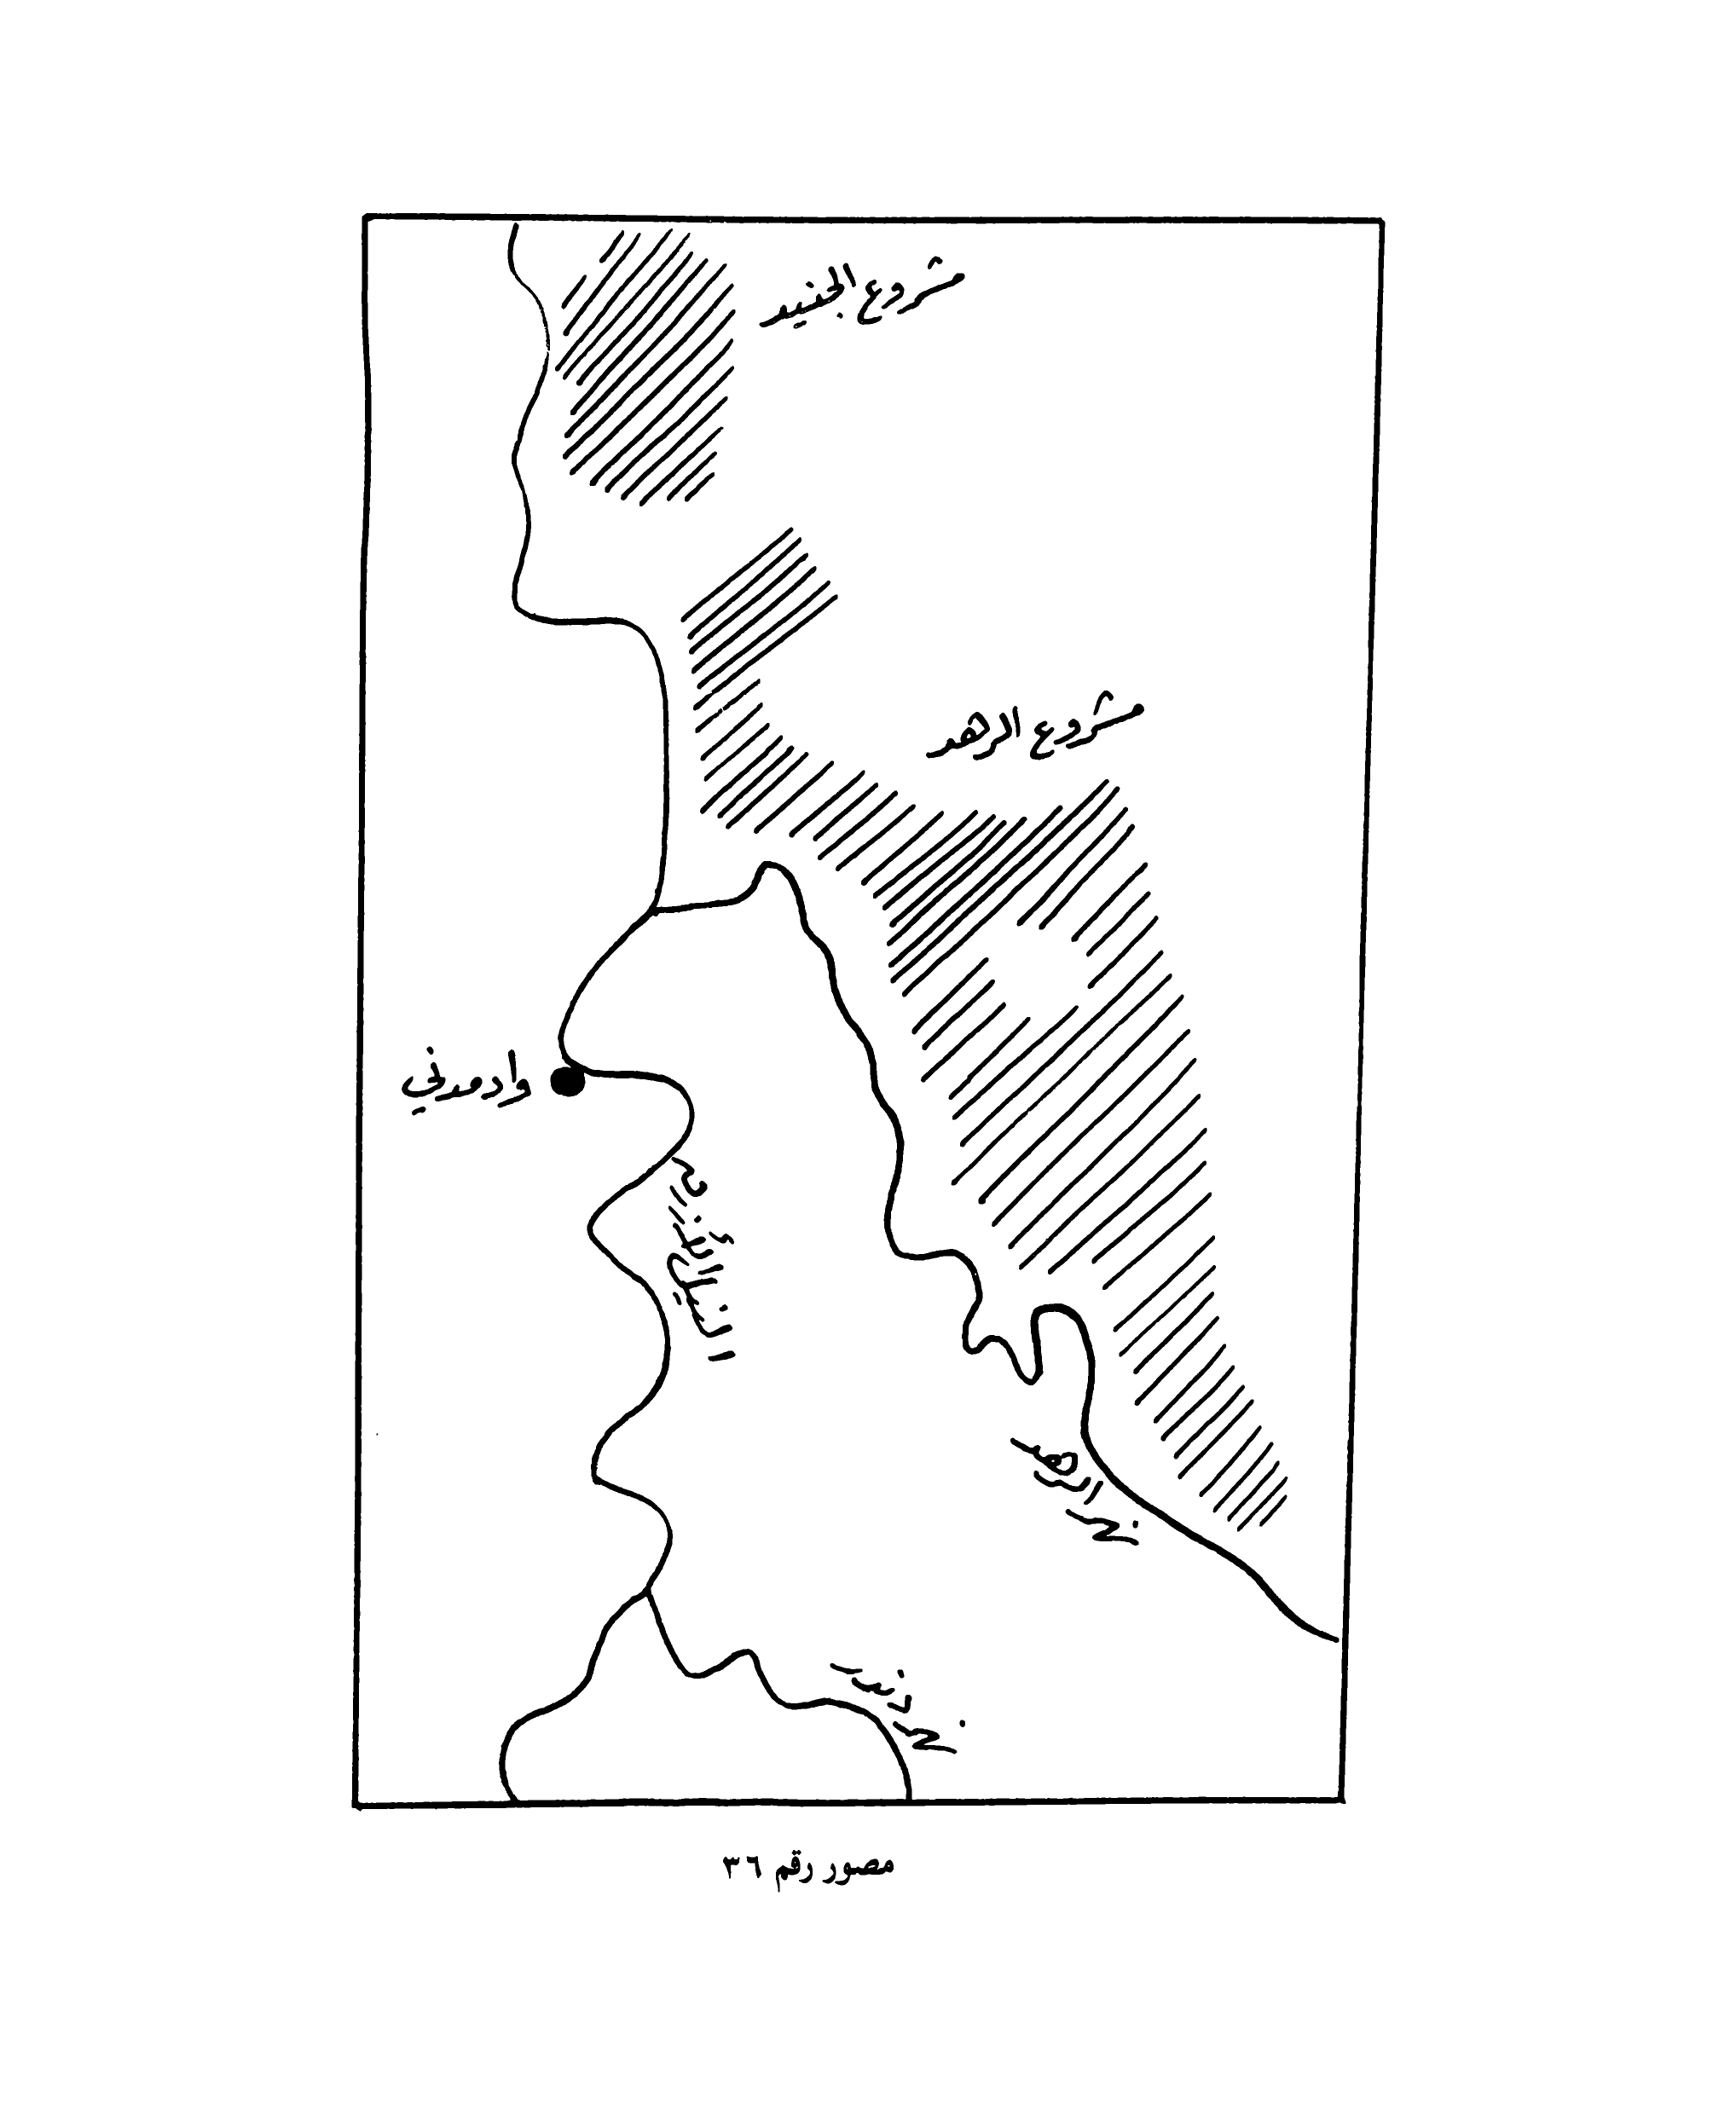 مشروع الجنيد
مشروع الرهد
وادمدني
النيل الأزرق
نهر الرهد
نهر
مصور رقم ٣٦